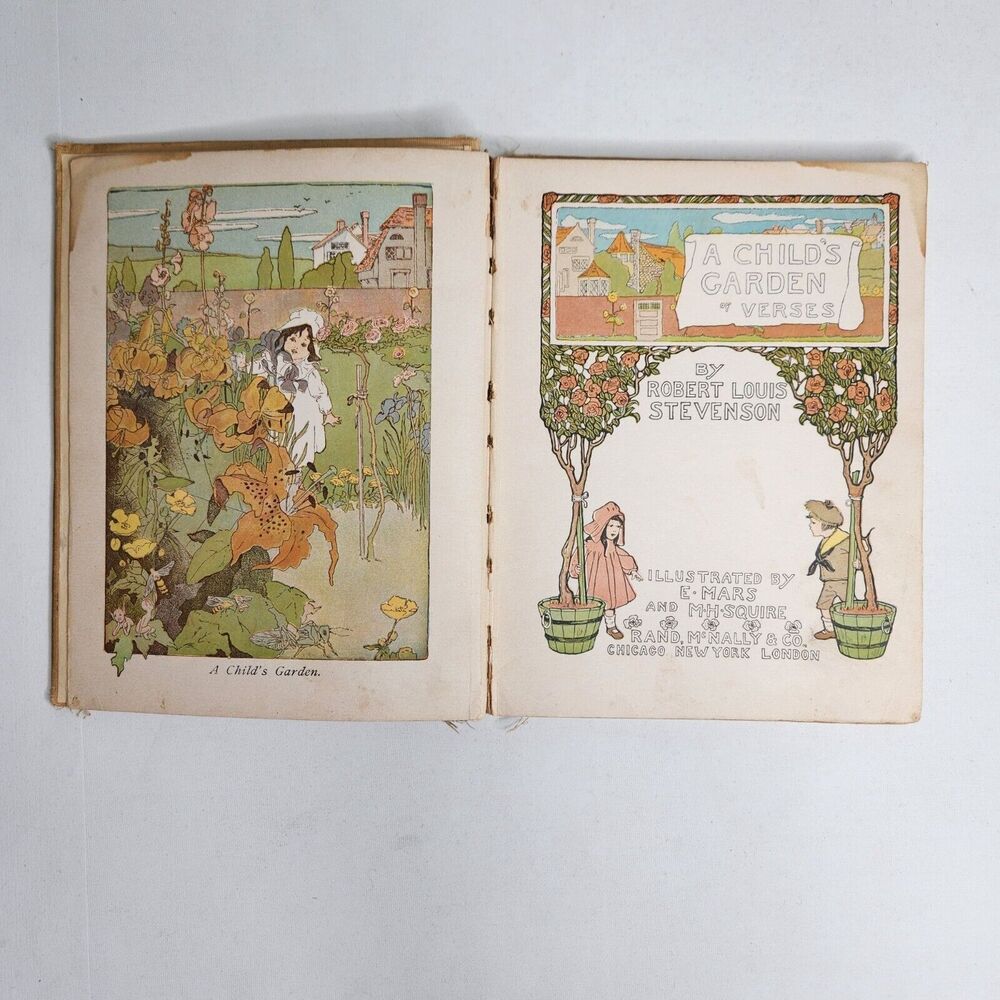 A Child's Garden.
A CHILD'S
GARDEN
OF VERSES
BY
ROBERT LOUIS
STEVENSON
ILLUSTRATED BY
E. MARS
AND M.H. SQUIRE
RAND, McNALLY & CO.
CHICAGO NEW YORK LONDON